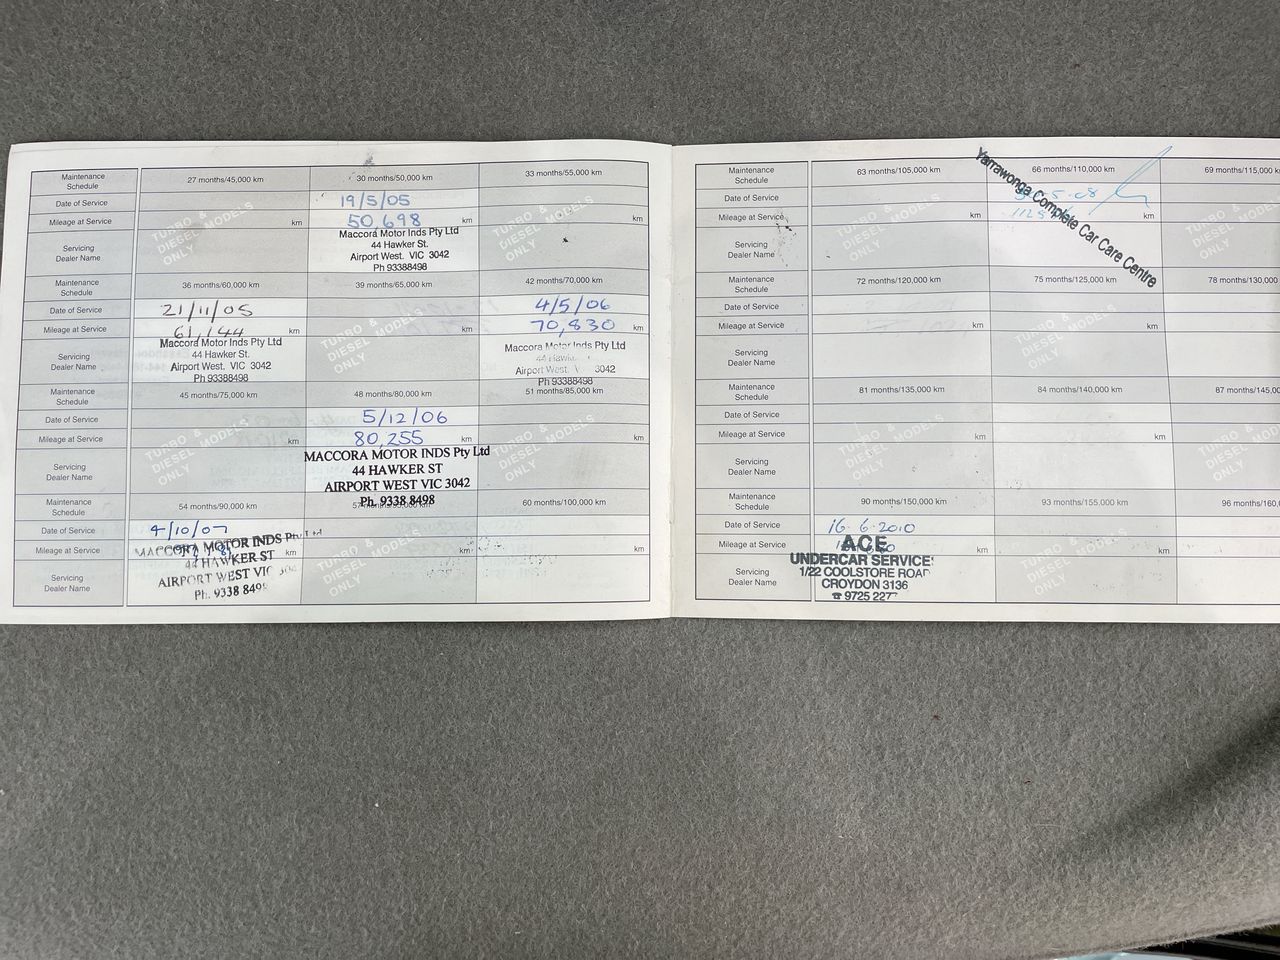 Maintenance Schedule
27 months/45,000 km
30 months/50,000 km
33 months/55,000 km
Date of Service
19/5/05
Mileage at Service
km
50,698 km
km
Servicing Dealer Name
TURBO & DIESEL MODELS ONLY
Maccora Motor Inds Pty Ltd
44 Hawker St.
Airport West. VIC 3042
Ph 93388498
TURBO & DIESEL MODELS ONLY
Maintenance Schedule
36 months/60,000 km
39 months/65,000 km
42 months/70,000 km
Date of Service
21/11/05
4/5/06
Mileage at Service
61,144 km
km
70,830 km
Servicing Dealer Name
Maccora Motor Inds Pty Ltd
44 Hawker St.
Airport West. VIC 3042
Ph 93388498
TURBO & DIESEL MODELS ONLY
Maccora Motor Inds Pty Ltd
44 Hawk
Airport West. V 3042
Ph 93388498
Maintenance Schedule
45 months/75,000 km
48 months/80,000 km
51 months/85,000 km
Date of Service
5/12/06
Mileage at Service
km
80,255 km
km
Servicing Dealer Name
TURBO & DIESEL MODELS ONLY
MACCORA MOTOR INDS Pty Ltd
44 HAWKER ST
AIRPORT WEST VIC 3042
Ph. 9338 8498
TURBO & DIESEL MODELS ONLY
Maintenance Schedule
54 months/90,000 km
60 months/100,000 km
Date of Service
4/10/07
Mileage at Service
km
km
km
Servicing Dealer Name
MACCORA MOTOR INDS Pty Ltd
44 HAWKER ST
AIRPORT WEST VIC 304
Ph. 9338 849
TURBO & DIESEL MODELS ONLY
Maintenance Schedule
63 months/105,000 km
66 months/110,000 km
69 months/115,000 k
Date of Service
5.08
Mileage at Service
km
km
Servicing Dealer Name
TURBO & DIESEL MODELS ONLY
Yarrawonga Complete Car Care Centre
TURBO & DIESEL MODELS ONLY
Maintenance Schedule
72 months/120,000 km
75 months/125,000 km
78 months/130,000
Date of Service
Mileage at Service
km
km
Servicing Dealer Name
TURBO & DIESEL MODELS ONLY
Maintenance Schedule
81 months/135,000 km
84 months/140,000 km
87 months/145,00
Date of Service
Mileage at Service
km
km
Servicing Dealer Name
TURBO & DIESEL MODELS ONLY
TURBO & DIESEL MODELS ONLY
Maintenance Schedule
90 months/150,000 km
93 months/155,000 km
96 months/160,
Date of Service
16.6.2010
Mileage at Service
km
km
Servicing Dealer Name
ACE
UNDERCAR SERVICES
1/22 COOLSTORE ROAD
CROYDON 3136
☎ 9725 227
TURBO & DIESEL MODELS ONLY